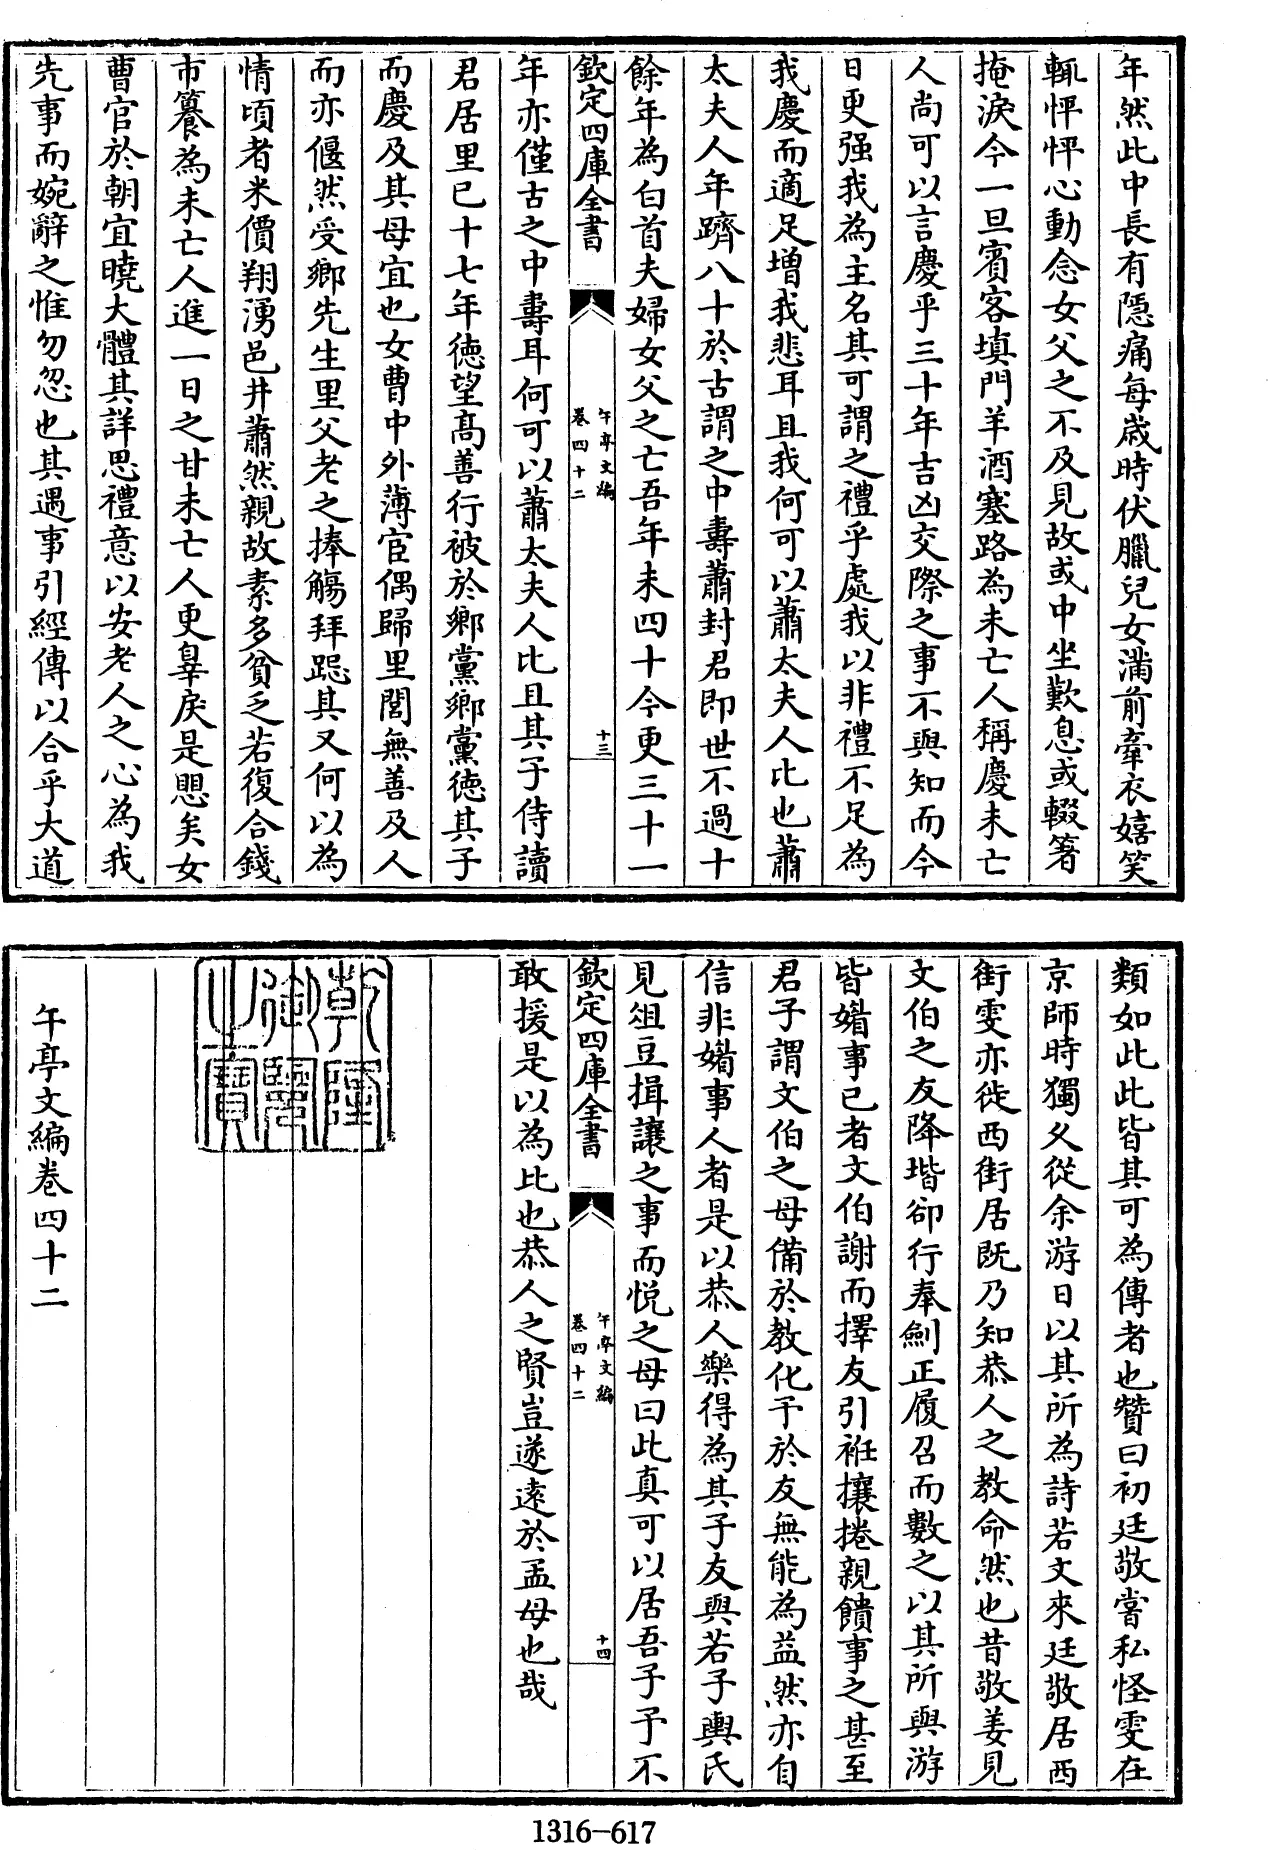 年然此中長有隱痛每歲時伏臘兒女滿前牽衣嬉笑
輒怦怦心動念女父之不及見故或中坐歎息或輟箸
掩淚今一旦賓客填門羊酒塞路為未亡人稱慶未亡
人尚可以言慶乎三十年吉凶交際之事不與知而今
日更强我為主名其可謂之禮乎處我以非禮不足為
我慶而適足增我悲耳且我何可以蕭太夫人比也蕭
太夫人年躋八十於古謂之中壽蕭封君即世不過十
餘年為白首夫婦女父之亡吾年未四十今更三十一
欽定四庫全書
午亭文編
卷四十二
十三
年亦僅古之中壽耳何可以蕭太夫人比且其子侍讀
君居里已十七年徳望髙善行被於鄉黨鄉黨徳其子
而慶及其母宜也女曹中外薄宦偶歸里閭無善及人
而亦偃然受鄉先生里父老之捧觴拜跽其又何以為
情頃者米價翔湧邑井蕭然親故素多貧乏若復合錢
市饌為未亡人進一日之甘未亡人更辠戾是愳矣女
曹官於朝宜曉大體其詳思禮意以安老人之心為我
先事而婉辭之惟勿忽也其遇事引經傳以合乎大道
類如此此皆其可為傳者也贊曰初廷敬嘗私怪雯在
京師時獨久從余游日以其所為詩若文來廷敬居西
街雯亦徙西街居既乃知恭人之教命然也昔敬姜見
文伯之友降堦卻行奉劍正履召而數之以其所與游
皆媘事已者文伯謝而擇友引衽攘捲親饋事之甚至
君子謂文伯之母備於教化予於友無能為益然亦自
信非媘事人者是以恭人樂得為其子友與若子輿氏
見俎豆揖讓之事而悅之母曰此真可以居吾子予不
欽定四庫全書
午亭文編
卷四十二
十四
敢援是以為比也恭人之賢豈遂遠於孟母也哉
乾隆
御覽
之寶
午亭文編卷四十二
1316-617